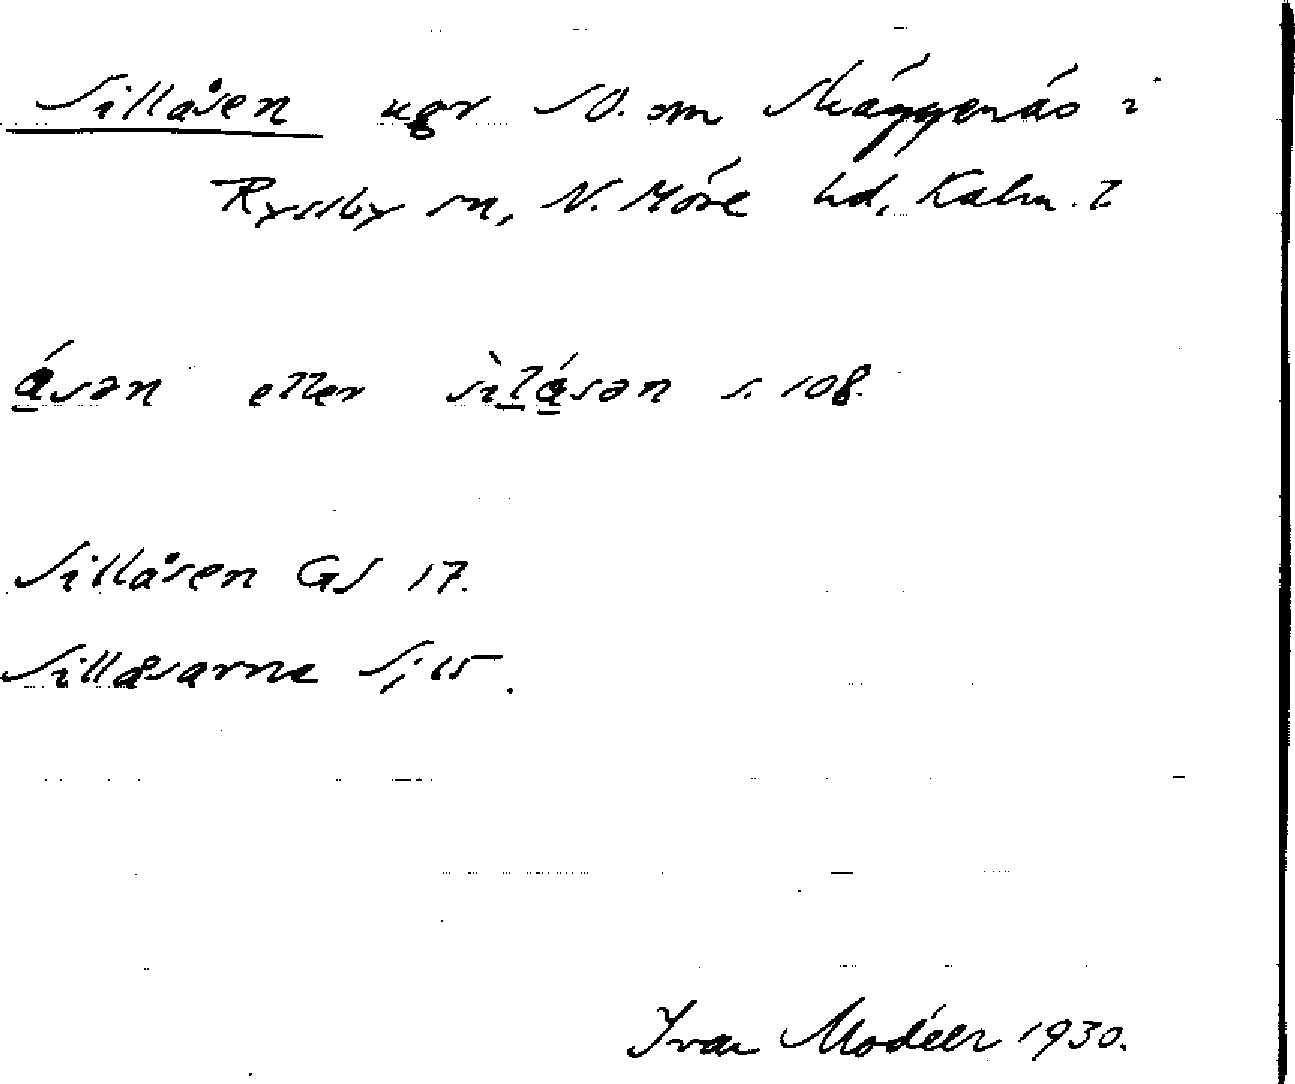 Sillåsen ugr SO. om Skäggenäs i
Ryssby sn, N. Möre hd, Kalm. l
åsən eller sìlåsən s. 108.
Sillåsen GS 17.
Sillåsarne Sj 15.
Ivar Modéer 1930.